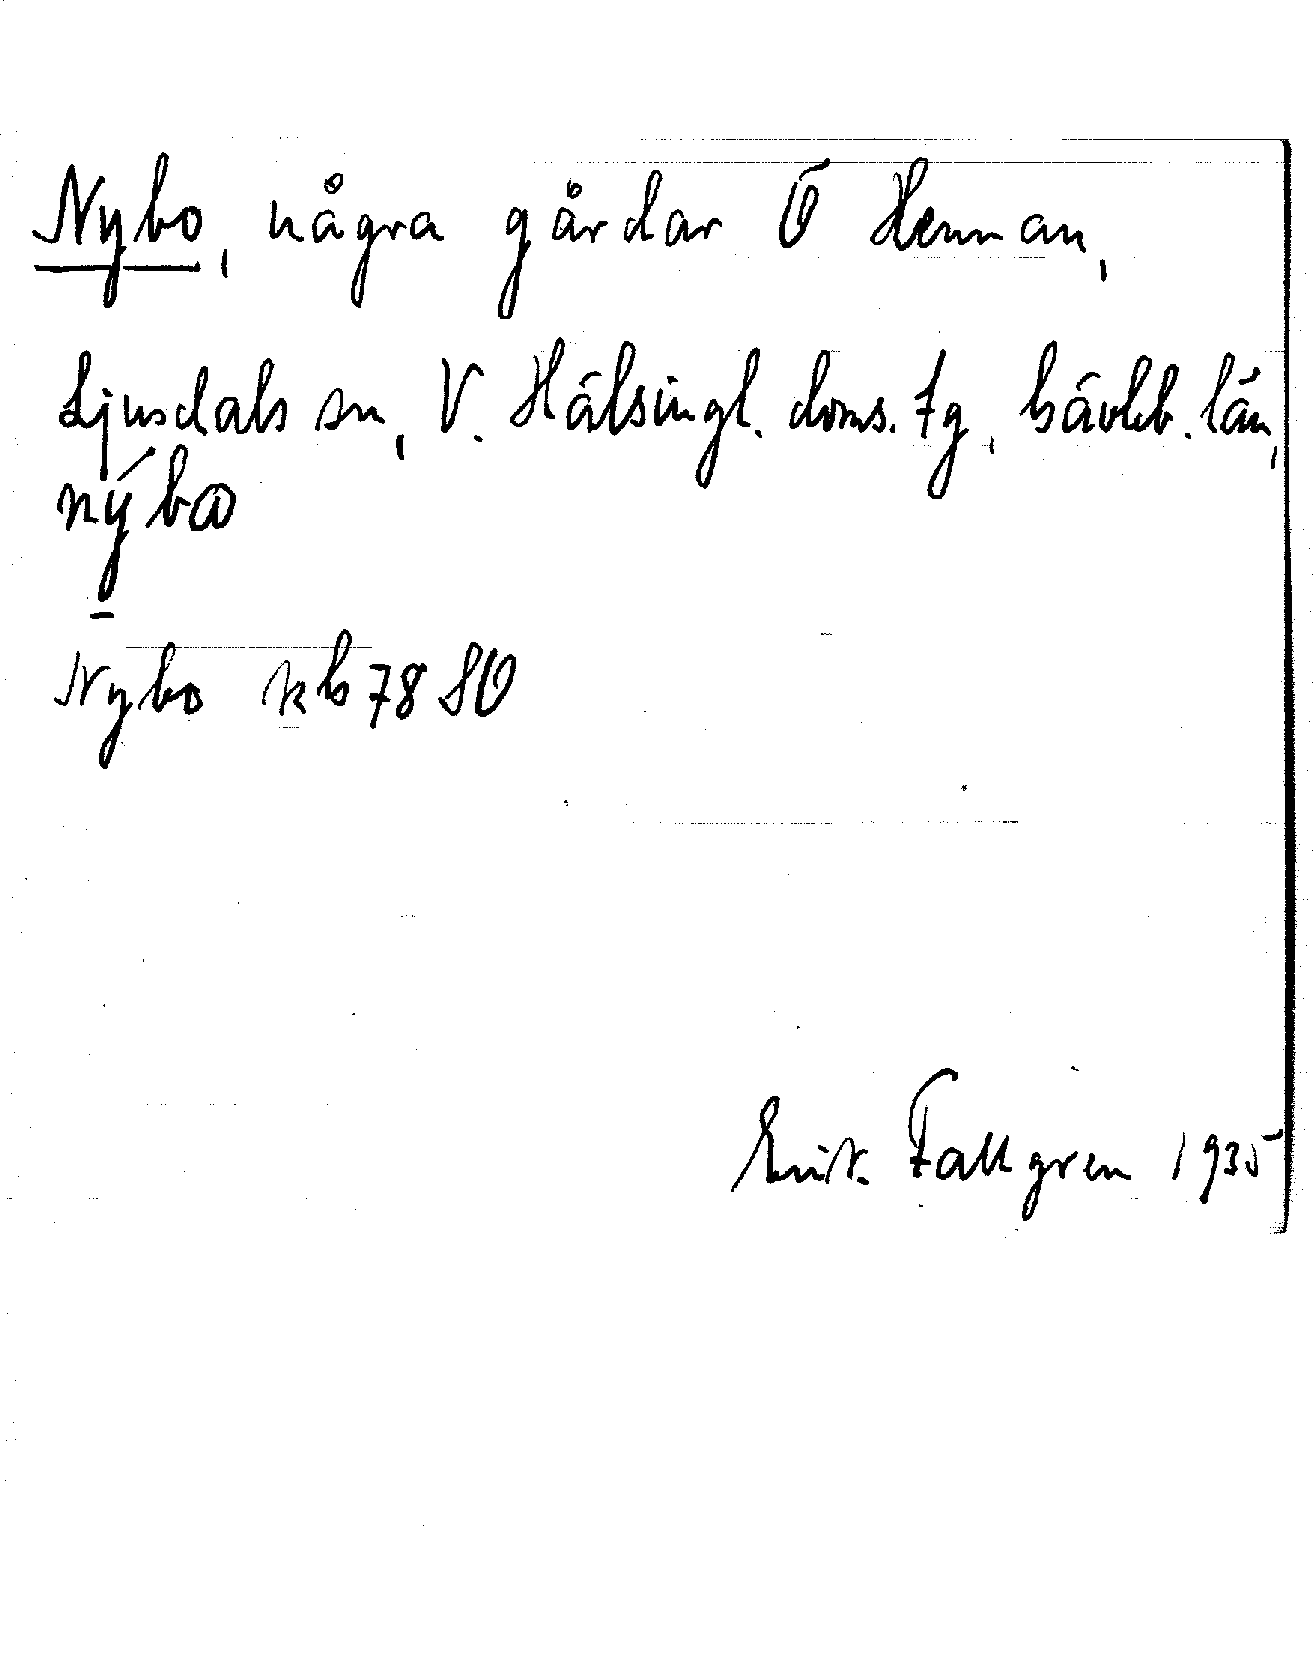 Nybo, några gårdar Ö Hennan,
Ljusdals sn, V. Hälsingl. doms. fg, Gävleb. län,
nýbω
Nybo kb 78 SV
Erik Fallgren 1935